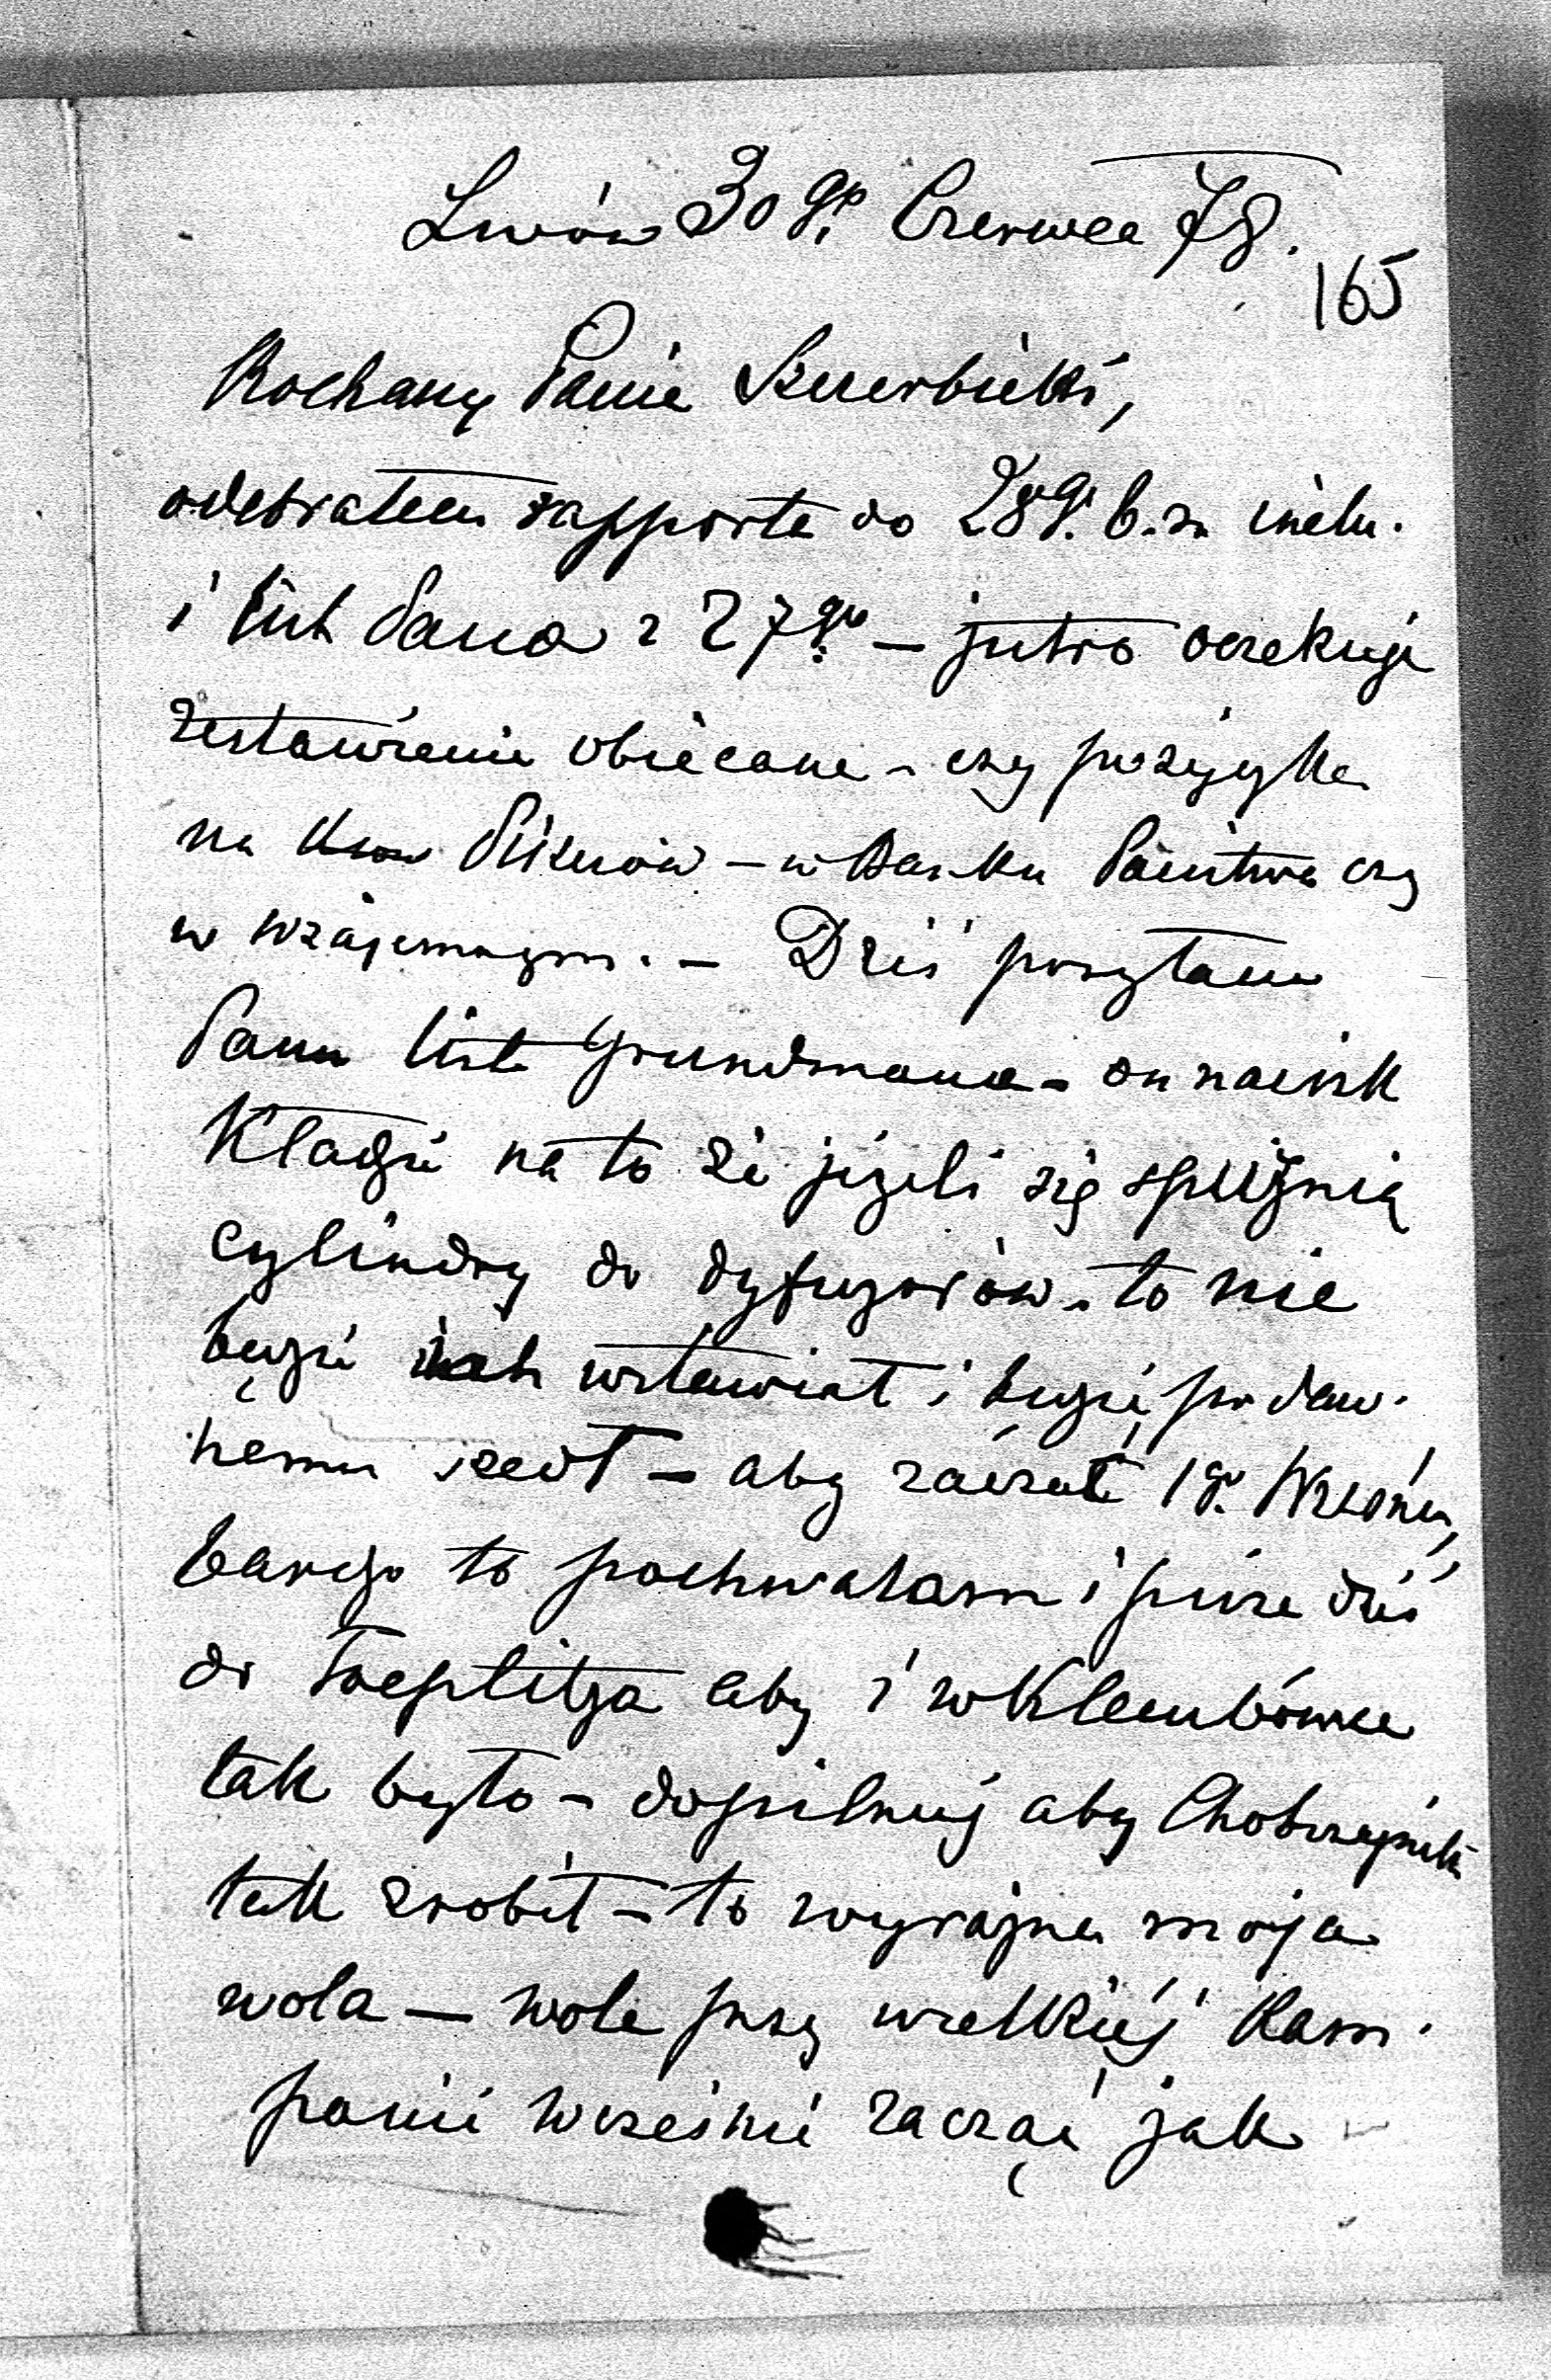 Lwów 30go Czerwca 78.
165
Kochany Panie
odebrałem rapporta do 28go b.m. inclu.
i list Pana z 27go — jutro oczekuję
zestawienie obiecane – czy pożyczka
na Pikerów – w Banku Państwa czy
w wzajemnym. – Dziś posyłam
Panu list Grundmana – on nacisk
Kładzie na to że jeżeli się spuźnią
cylindry do dyfuzorów – to nie
będzie ich wstawiał i będzie po daw-
nemu szedł – aby zacząć 1go Wrześn,
bardzo to pochwalam i piszę dziś
do Toeplitza aby i w Klembówce
tak było – dopilnuj aby
tak zrobił – to wyraźna moja
wola — wolę przy wielkiéj Kam-
panii wcześnie zacząć jak